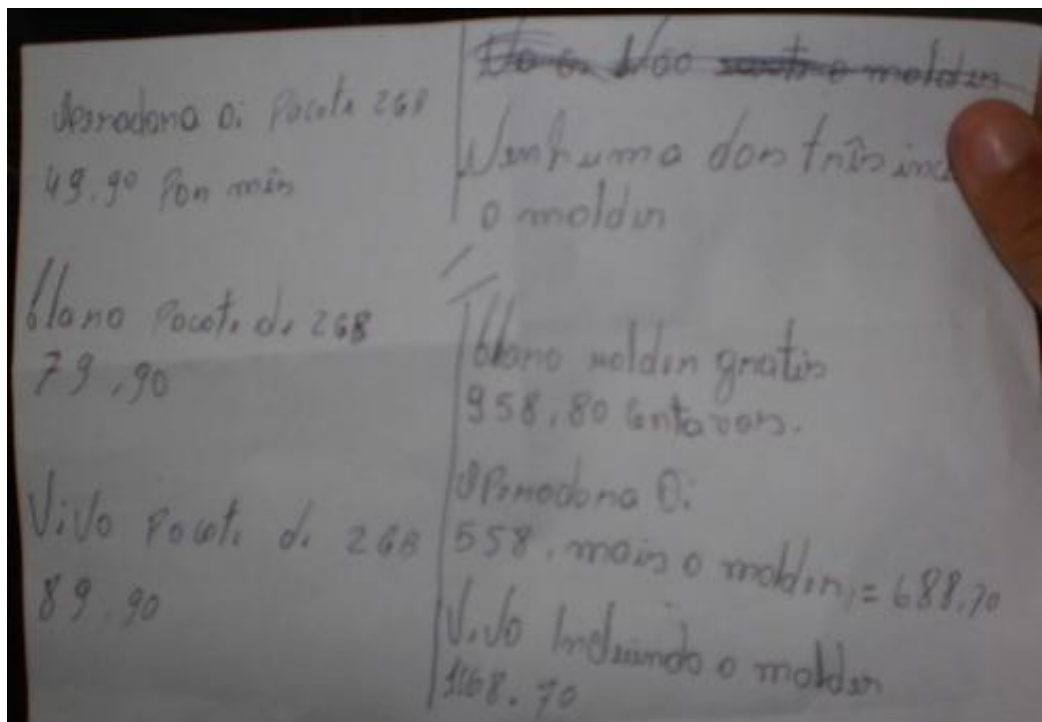 Openadona Oi Pacote 2GB
49.90 Pon mês
Clano Pacote de 2GB
79.90
Vivo Pacote de 2GB
89.90
Nenhuma dos três
o molden
Clano molden gnatis
958.80 Centavos.
Openadona Oi
558. mais o molden = 688,70
Vivo Incluindo o molden
1168.70